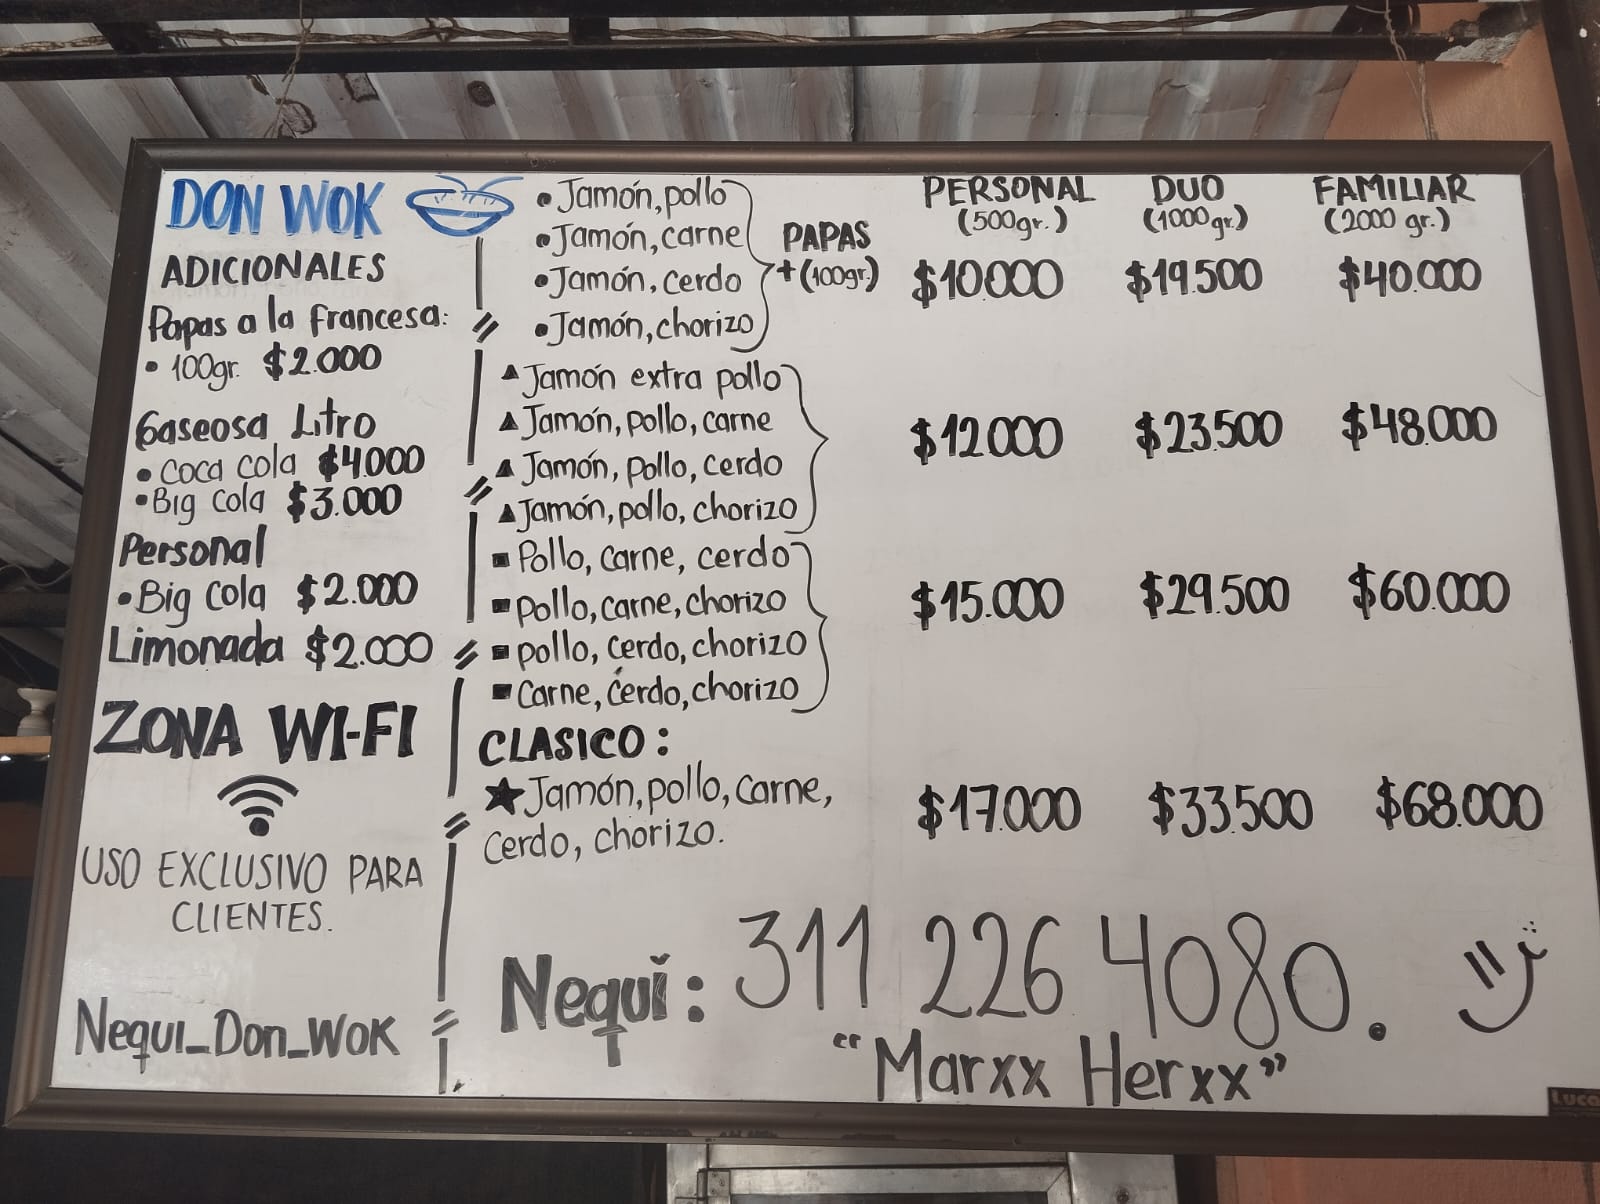 DON WOK
ADICIONALES
Papas a la francesa:
• 100gr. $2.000
Gaseosa Litro
• coca cola $4.000
• Big cola $3.000
Personal
• Big Cola $2.000
Limonada $2.000
ZONA WI-FI
USO EXCLUSIVO PARA
CLIENTES.
Nequi_Don_Wok
• Jamón, pollo
• Jamón, carne
• Jamón, cerdo
• Jamón, chorizo
PAPAS
+ (100gr.)
PERSONAL DUO FAMILIAR
(500gr.) (1000gr.) (2000 gr.)
$10.000 $19.500 $40.000
▲ Jamón extra pollo
▲ Jamón, pollo, carne
▲ Jamón, pollo, cerdo
▲ Jamón, pollo, chorizo
$12.000 $23.500 $48.000
■ Pollo, carne, cerdo
■ pollo, carne, chorizo
■ pollo, cerdo, chorizo
■ Carne, cerdo, chorizo
$15.000 $29.500 $60.000
CLASICO:
★ Jamón, pollo, carne,
cerdo, chorizo.
$17.000 $33.500 $68.000
Nequi: 311 226 4080.
"Marxx Herxx"